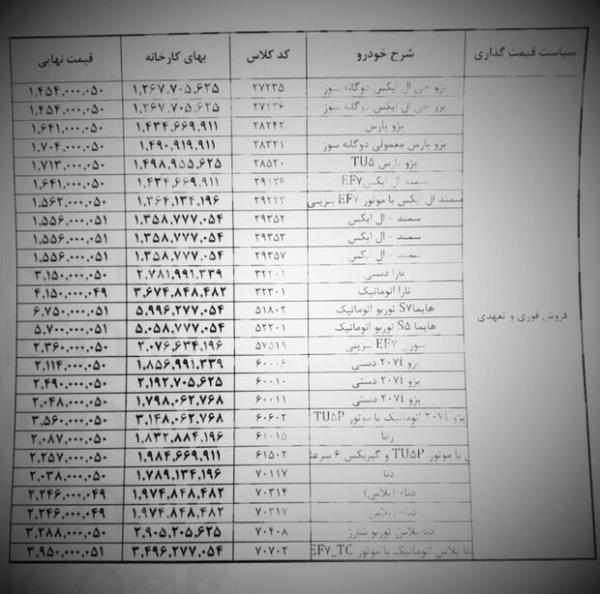 سیاست قیمت گذاری شرح خودرو کد کلاس بهای کارخانه قیمت نهایی
پژو جی ال ایکس دوگانه سوز ۲۷۲۳۵ ۱،۲۶۷،۷۰۵،۶۲۵ ۱،۴۵۴،۰۰۰،۰۵۰
پژو جی ال ایکس دوگانه سوز ۲۷۲۳۶ ۱،۲۶۷،۷۰۵،۶۲۵ ۱،۴۵۴،۰۰۰،۰۵۰
پژو پارس ۲۸۲۴۲ ۱،۴۳۴،۶۶۹،۹۱۱ ۱،۶۴۱،۰۰۰،۰۵۰
پژو پارس معمولی دوگانه سوز ۲۸۳۲۱ ۱،۴۹۰،۹۱۹،۹۱۱ ۱،۷۰۴،۰۰۰،۰۵۰
پژو پارس TU۵ ۲۸۵۲۰ ۱،۴۹۸،۹۵۵،۶۲۵ ۱،۷۱۳،۰۰۰،۰۵۰
سمند ال ایکس EF۷ ۲۹۱۲۶ ۱،۴۳۴،۶۶۹،۹۱۱ ۱،۶۴۱،۰۰۰،۰۵۰
سمند ال ایکس با موتور EF۷ بنزینی ۱،۳۶۴،۱۳۴،۱۹۶ ۱،۵۶۲،۰۰۰،۰۵۰
سمند - ال ایکس ۲۹۳۵۲ ۱،۳۵۸،۷۷۷،۰۵۴ ۱،۵۵۶،۰۰۰،۰۵۱
سمند - ال ایکس ۲۹۳۵۳ ۱،۳۵۸،۷۷۷،۰۵۴ ۱،۵۵۶،۰۰۰،۰۵۱
سمند - ال ایکس ۲۹۳۵۷ ۱،۳۵۸،۷۷۷،۰۵۴ ۱،۵۵۶،۰۰۰،۰۵۱
تارا دستی ۳۲۲۰۱ ۲،۷۸۱،۹۹۱،۳۳۹ ۳،۱۵۰،۰۰۰،۰۵۰
تارا اتوماتیک ۳۲۳۰۱ ۳،۶۷۴،۸۴۸،۴۸۲ ۴،۱۵۰،۰۰۰،۰۴۹
فروش فوری و تعهدی هایما S۷ توربو اتوماتیک ۵۱۸۰۲ ۵،۹۹۶،۲۷۷،۰۵۴ ۶،۷۵۰،۰۰۰،۰۵۱
هایما S۵ توربو اتوماتیک ۵۲۲۰۱ ۵،۰۵۸،۷۷۷،۰۵۴ ۵،۷۰۰،۰۰۰،۰۵۱
سورن EF۷ بنزینی ۵۷۵۱۹ ۲،۰۷۶،۶۳۴،۱۹۶ ۲،۳۶۰،۰۰۰،۰۵۰
پژو ۲۰۷i دستی ۶۰۰۰۶ ۱،۸۵۶،۹۹۱،۳۳۹ ۲،۱۱۴،۰۰۰،۰۵۰
پژو ۲۰۷i دستی ۶۰۰۱۰ ۲،۱۹۲،۷۰۵،۶۲۵ ۲،۴۹۰،۰۰۰،۰۵۰
پژو ۲۰۷i دستی ۶۰۰۱۱ ۱،۷۹۸،۰۶۲،۷۶۸ ۲،۰۴۸،۰۰۰،۰۵۰
پژو ۲۰۷i اتوماتیک با موتور TU۵P ۶۰۶۰۲ ۳،۱۴۸،۰۶۲،۷۶۸ ۳،۵۶۰،۰۰۰،۰۵۰
رانا ۶۱۰۱۵ ۱،۸۳۲،۸۸۴،۱۹۶ ۲،۰۸۷،۰۰۰،۰۵۰
با موتور TU۵P و گیربکس ۶ سرعته ۶۱۵۰۲ ۱،۹۸۴،۶۶۹،۹۱۱ ۲،۲۵۷،۰۰۰،۰۵۰
دنا ۷۰۱۱۷ ۱،۷۸۹،۱۳۴،۱۹۶ ۲،۰۳۸،۰۰۰،۰۵۰
دنا+ (پلاس) ۷۰۳۱۴ ۱،۹۷۴،۸۴۸،۴۸۲ ۲،۲۴۶،۰۰۰،۰۴۹
دنا+ (پلاس) ۷۰۳۱۷ ۱،۹۷۴،۸۴۸،۴۸۲ ۲،۲۴۶،۰۰۰،۰۴۹
دنا پلاس توربو شارژ ۷۰۴۰۸ ۲،۹۰۵،۲۰۵،۶۲۵ ۳،۲۸۸،۰۰۰،۰۵۰
دنا پلاس اتوماتیک با موتور EF۷_TC ۷۰۷۰۲ ۳،۴۹۶،۲۷۷،۰۵۴ ۳،۹۵۰،۰۰۰،۰۵۱